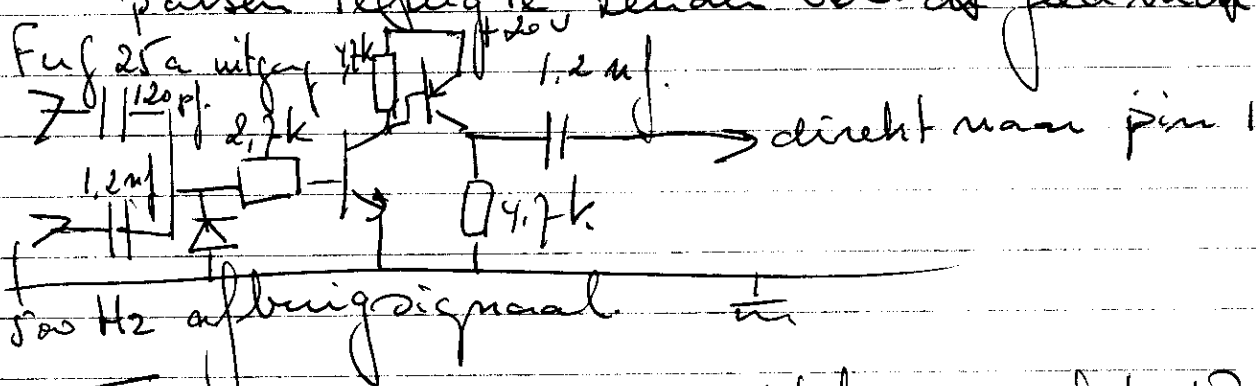 +20V
Fuf 25a uitgang 4,7k 1,2 nf.
120 pf. 2,7k
direkt naar pin 1
1,2 nf
4,7k.
500 Hz afbuigsignaal.